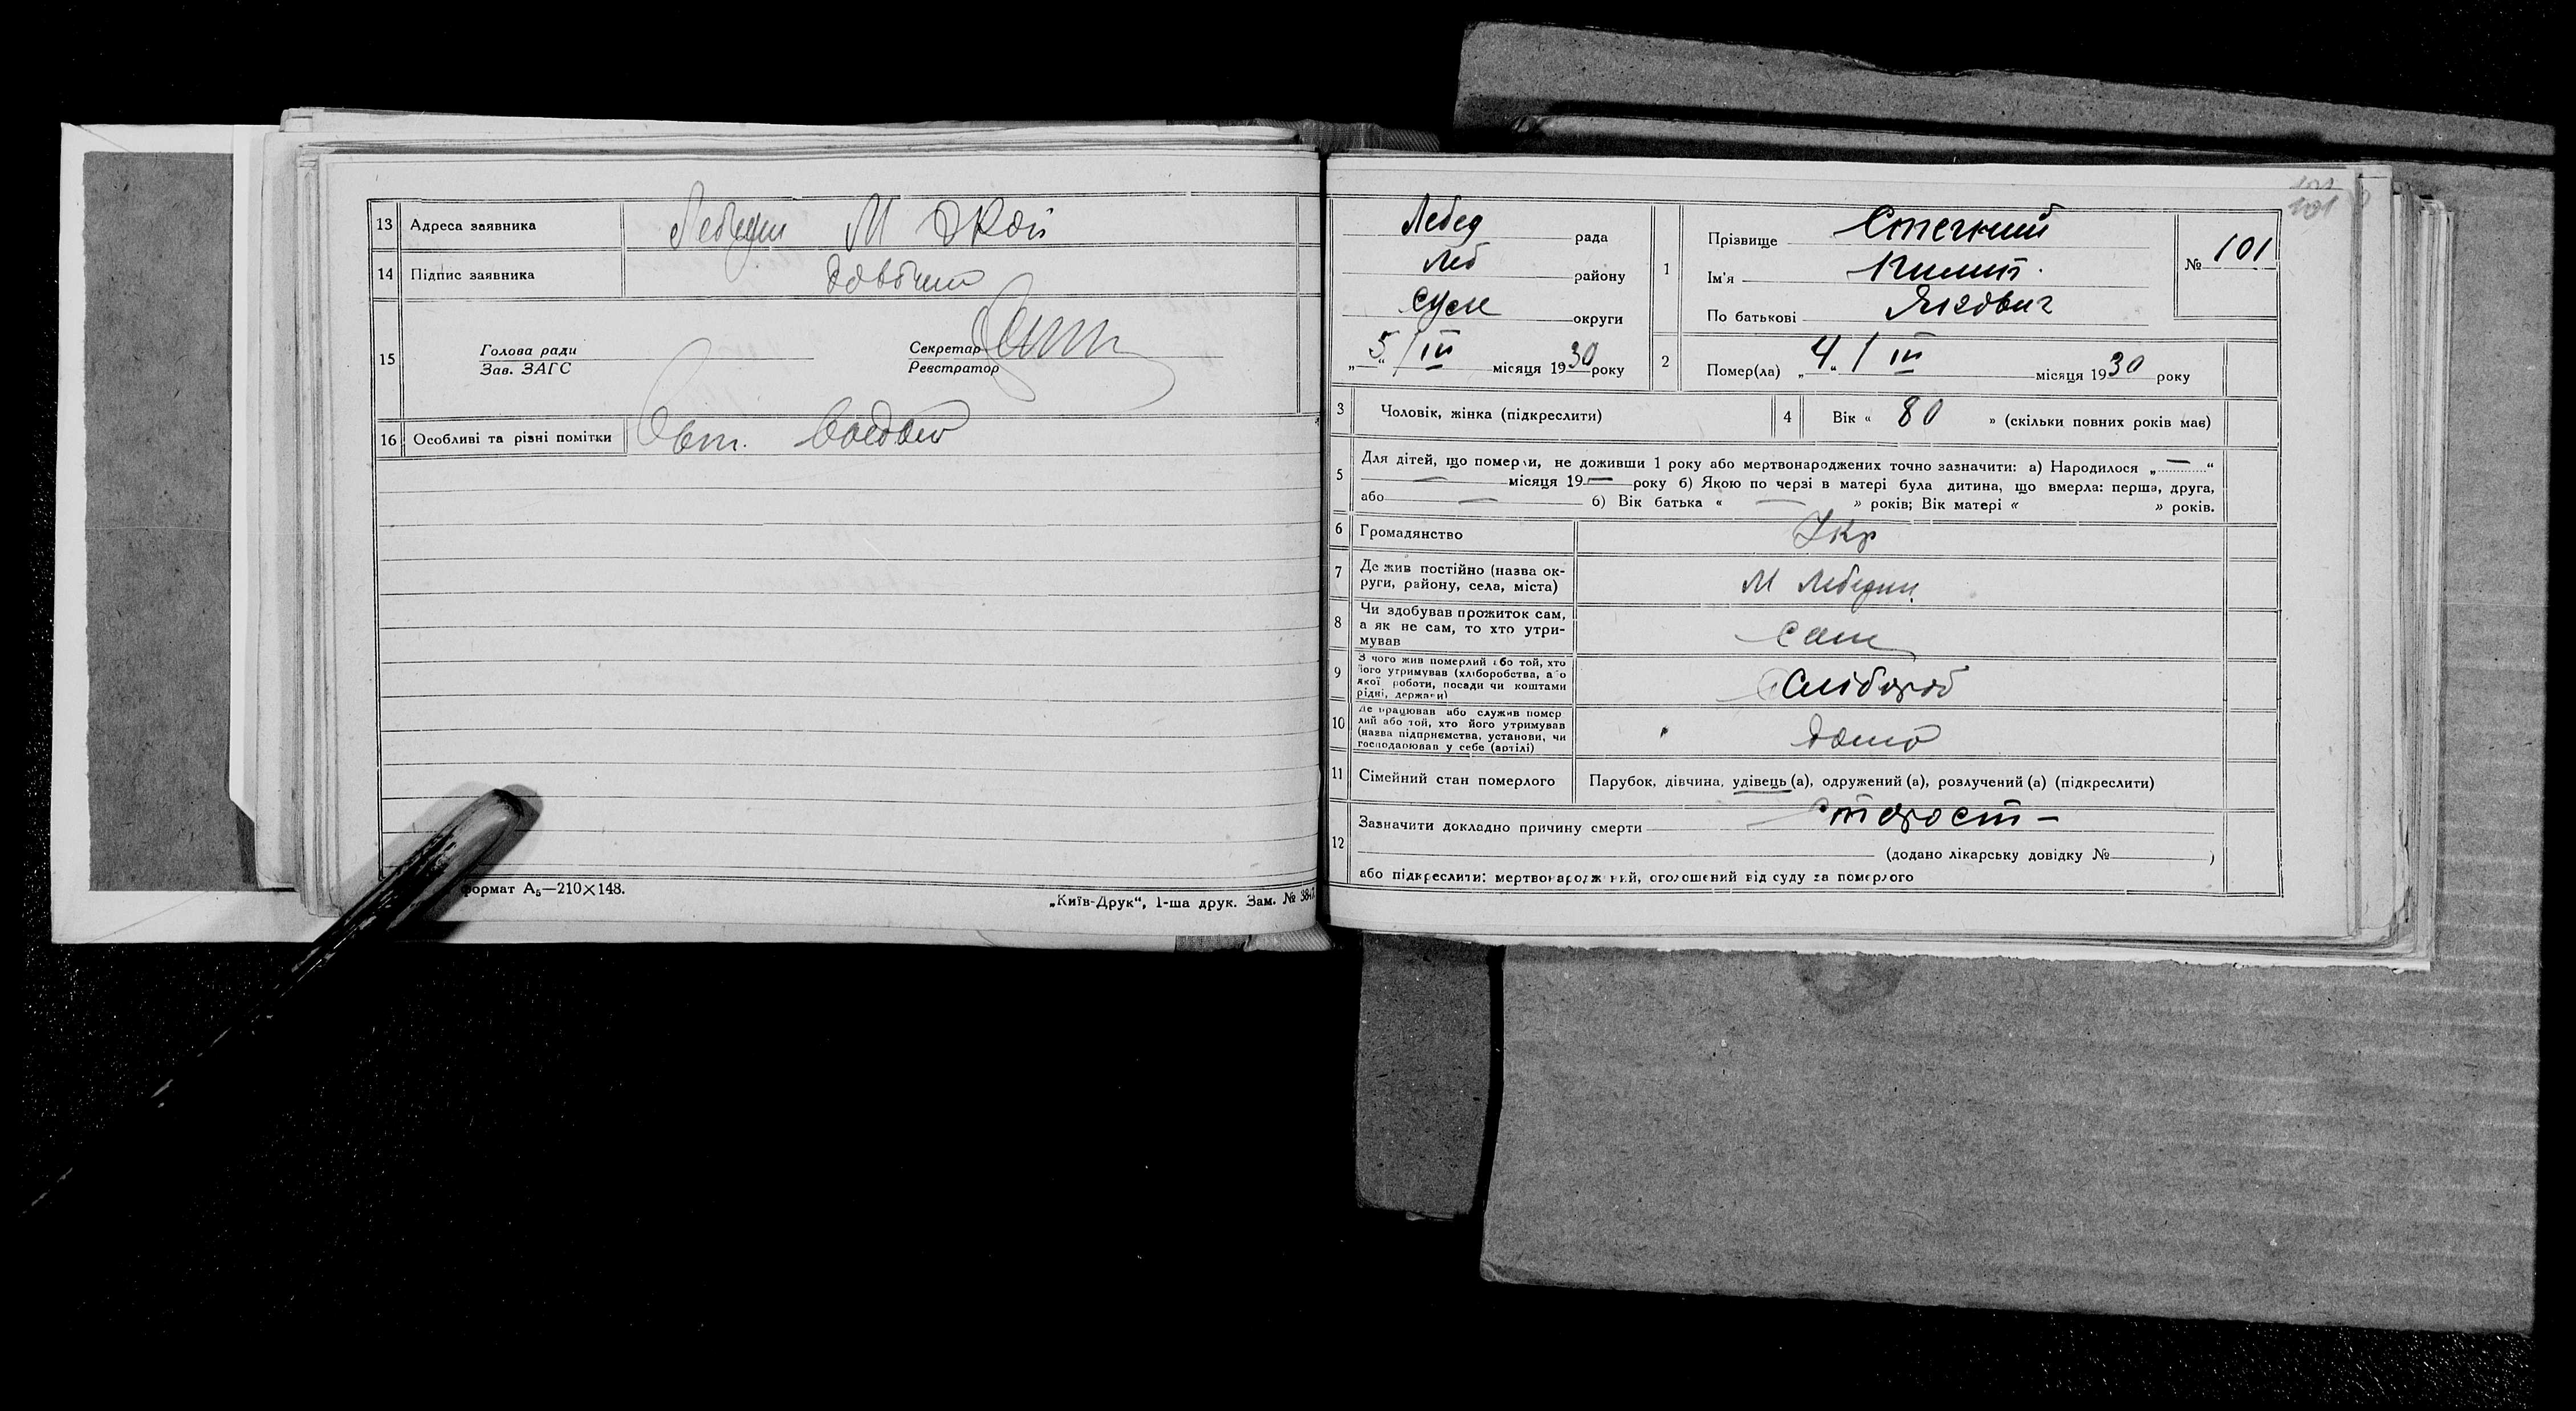 13 Адреса заявника Лебедин М
14 Підпис заявника
15 Голова ради
Зав. ЗАГС
Секретар
Реєстратор
16 Особливі та різні помітки
формат А₅—210×148.
„Київ-Друк“, 1-ша друк. Зам. №
101
Лебед рада
Леб району
Сум округи
„5“/III місяця 1930 року
1 Прізвище
Ім'я
По батькові Якович
№ 101
2 Помер(ла) „4“/III місяця 1930 року
3 Чоловік, жінка (підкреслити)
4 Вік « 80 » (скільки повних років має)
5 Для дітей, що померли, не доживши 1 року або мертвонароджених точно зазначити: а) Народилося „—“
— місяця 19— року б) Якою по черзі в матері була дитина, що вмерла: перша, друга,
або — б) Вік батька « — » років; Вік матері « » років.
6 Громадянство Укр
7 Де жив постійно (назва ок-
руги, району, села, міста) М Лебедин
8 Чи здобував прожиток сам,
а як не сам, то хто утри-
мував сам
9 З чого жив померлий або той, хто
його утримував (хліборобства, або
якої роботи, посади чи коштами
рідні, держави) Хлібороб
10 Де працював або служив помер
лий або той, хто його утримував
(назва підприємства, установи, чи
господарював у себе (артілі) дома
11 Сімейний стан померлого Парубок, дівчина, удівець (а), одружений (а), розлучений (а) (підкреслити)
12 Зазначити докладно причину смерти старост –
(додано лікарську довідку № )
або підкреслити: мертвонароджений, оголошений від суду за померлого